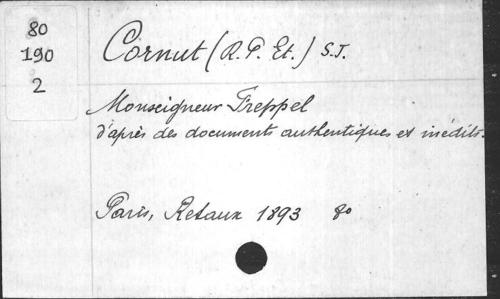 80
190
2
Cornut (R. P. Et.) S.J.
Monseigneur Freppel
d'après des documents authentiques et inédits.
Paris, Retaux 1893 8o